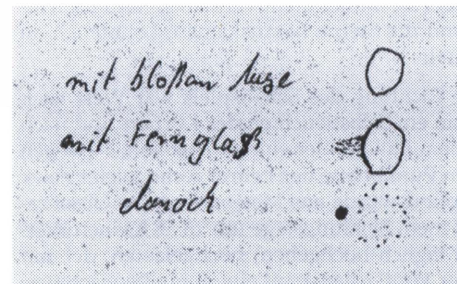 mit bloßem Auge
mit Fernglaß
danach